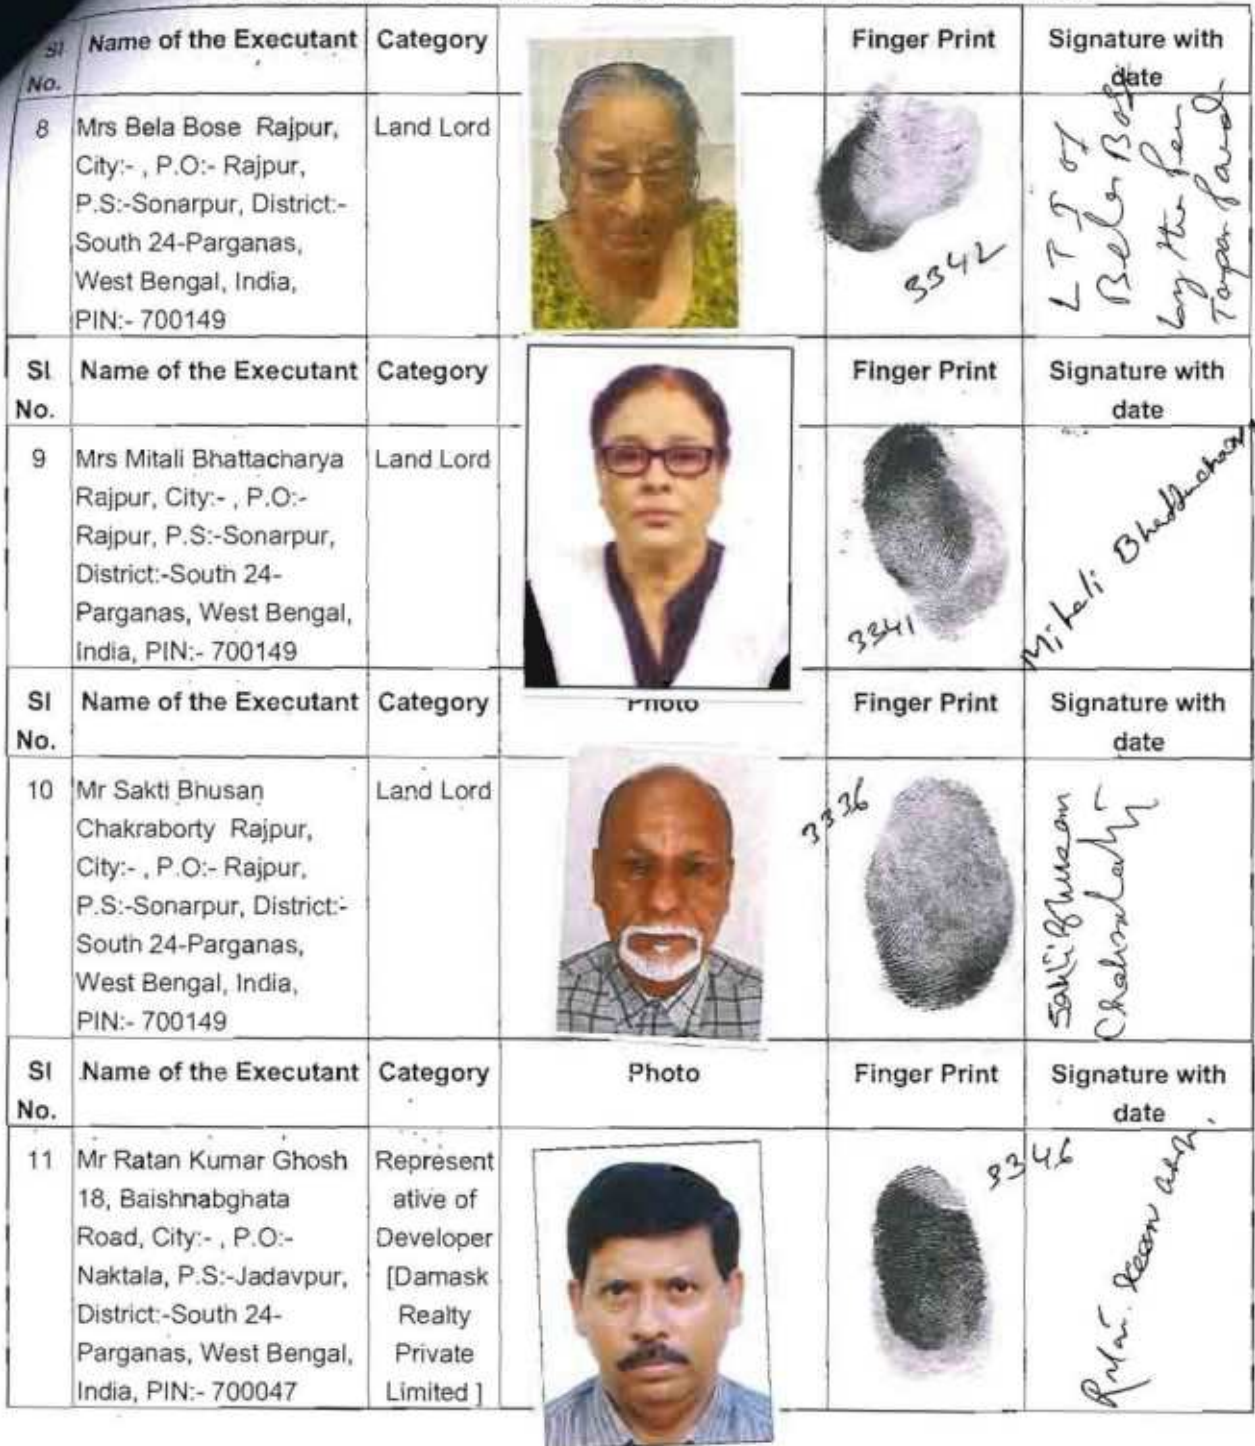 Sl No. Name of the Executant Category Finger Print Signature with date
8 Mrs Bela Bose Rajpur, Land Lord
City:- , P.O:- Rajpur,
P.S:-Sonarpur, District:-
South 24-Parganas,
West Bengal, India,
PIN:- 700149
3342
L T I of
Bela Bose
by the pen
Tapan
Sl No. Name of the Executant Category Finger Print Signature with date
9 Mrs Mitali Bhattacharya Land Lord
Rajpur, City:- , P.O:-
Rajpur, P.S:-Sonarpur,
District:-South 24-
Parganas, West Bengal,
India, PIN:- 700149
3341
Mitali Bhattacharya
Sl No. Name of the Executant Category Photo Finger Print Signature with date
10 Mr Sakti Bhusan Land Lord
Chakraborty Rajpur,
City:- , P.O:- Rajpur,
P.S:-Sonarpur, District:-
South 24-Parganas,
West Bengal, India,
PIN:- 700149
3336
Sakti Bhusan
Chakraborty
Sl No. Name of the Executant Category Photo Finger Print Signature with date
11 Mr Ratan Kumar Ghosh Represent
18, Baishnabghata ative of
Road, City:- , P.O:- Developer
Naktala, P.S:-Jadavpur, [Damask
District:-South 24- Realty
Parganas, West Bengal, Private
India, PIN:- 700047 Limited ]
3346
Ratan